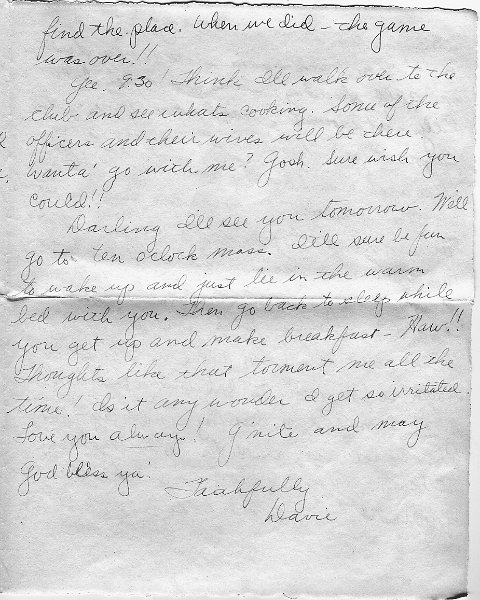 find the place. When we did - the game
was over!!
Gee. 9:30! Think I'll walk over to the
club and see whats cooking. Some of the
officers and their wives will be there
Wanta' go with me? Gosh. Sure wish you
could!!
Darling I'll see you tomorrow. We'll
go to ten o'clock mass. It'll sure be fun
to wake up and just lie in the warm
bed with you. Then go back to sleep while
you get up and make breakfast - Haw!!
Thoughts like that torment me all the
time! Is it any wonder I get so irritated.
Love you always! G'nite and may
God bless ya'.
Faithfully
Davie